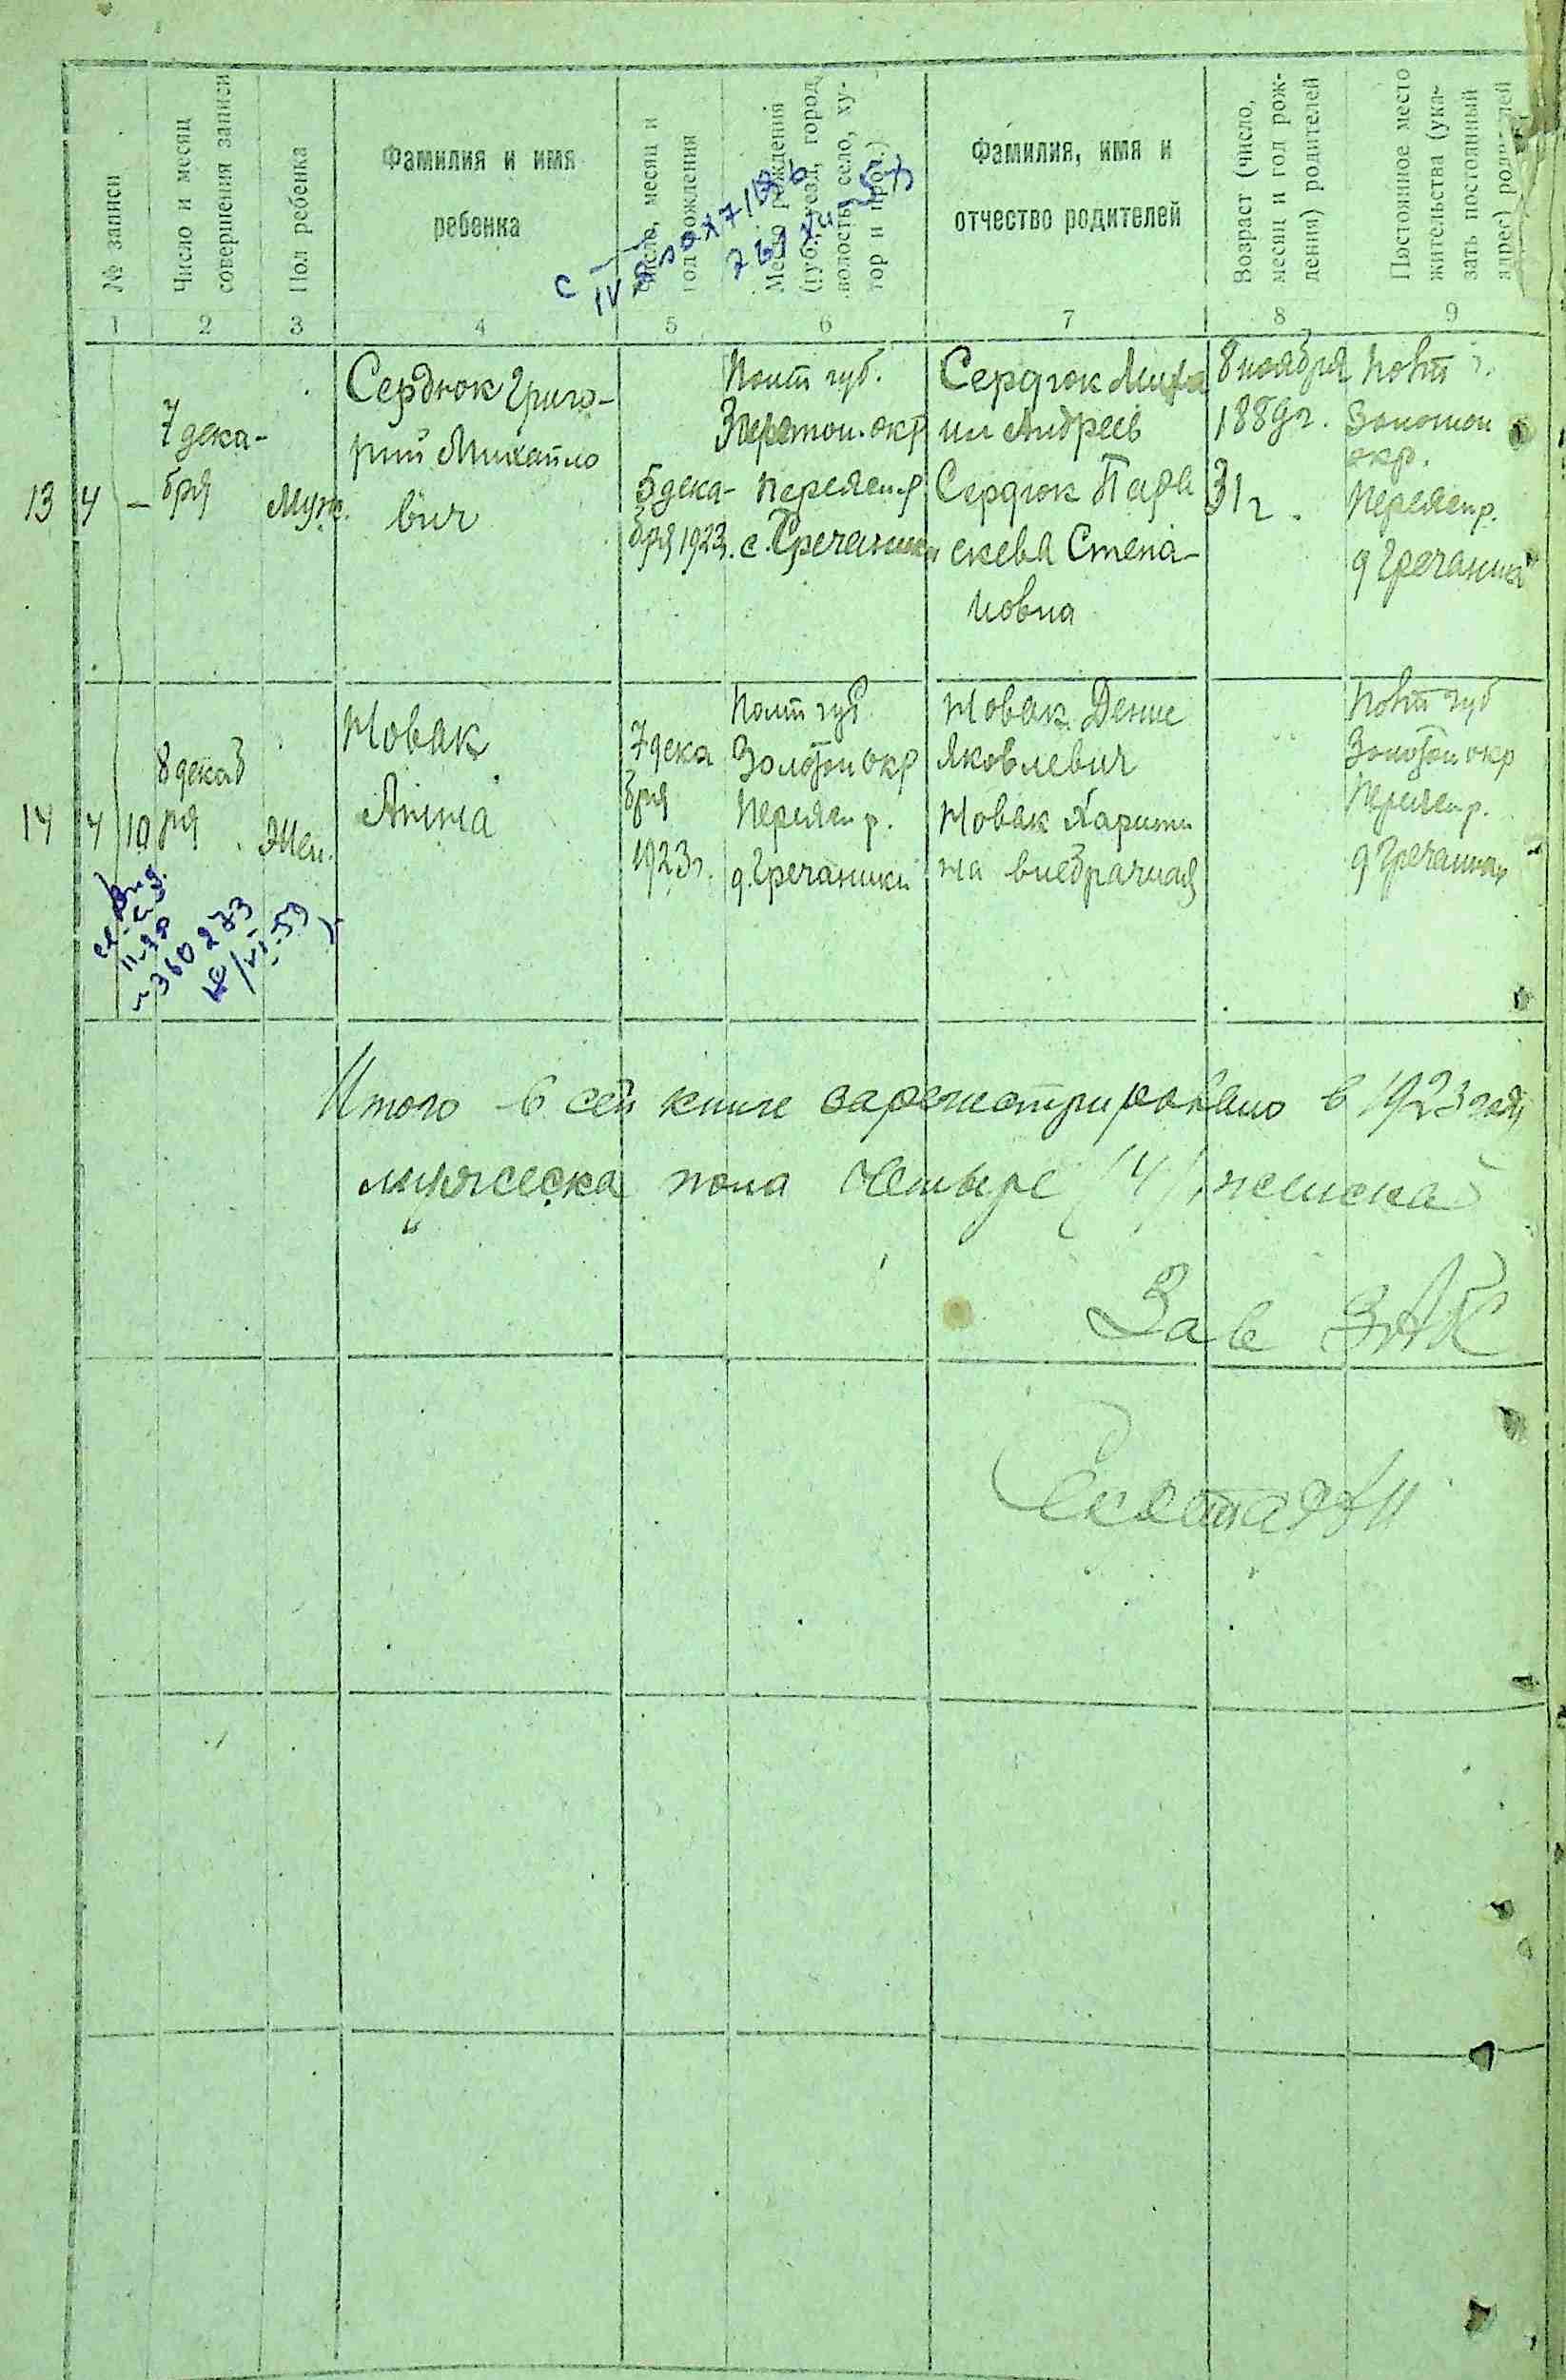 № записи
Число и месяц
совершения записи
Пол ребенка
Фамилия и имя
ребенка
Число, месяц и
год рождения
Место рождения
(губ., уезд, город,
волость, село, ху-
тор и проч.)
Фамилия, имя и
отчество родителей
Возраст (число,
месяц и год рож-
дения) родителей
Постоянное место
жительства (ука-
зать постоянный
адрес) родителей
1 2 3 4 5 6 7 8 9
13 4 –
7 дека-
бря
Муж.
Сердюк Григо-
рий Михайло
вич
5 дека-
бря 1923г.
Полт губ.
окр
Переяс р
с. Гречаники
Сердюк Миха
ил Андреев
Сердюк Пара
скева Степа-
новна
8 ноября
1889г.
31 г.
Полт
Золотон
окр.
Переяс р.
д Гречаники
14 4 10
8 декаб
ря
Жен.
Новак
Анна
7 дека
бря
1923г.
Полт губ
Золотон окр
Переяс р.
д. Гречаники
Новак Денис
Яковлевич
Новак Харити
на внебрачная
Полт губ
Золотон окр
Переяс р.
д Гречаники
360273
Итого в сей книге зарегистрировано в 1923 году
мужеска пола четыре (4), женска
Зав ЗАК